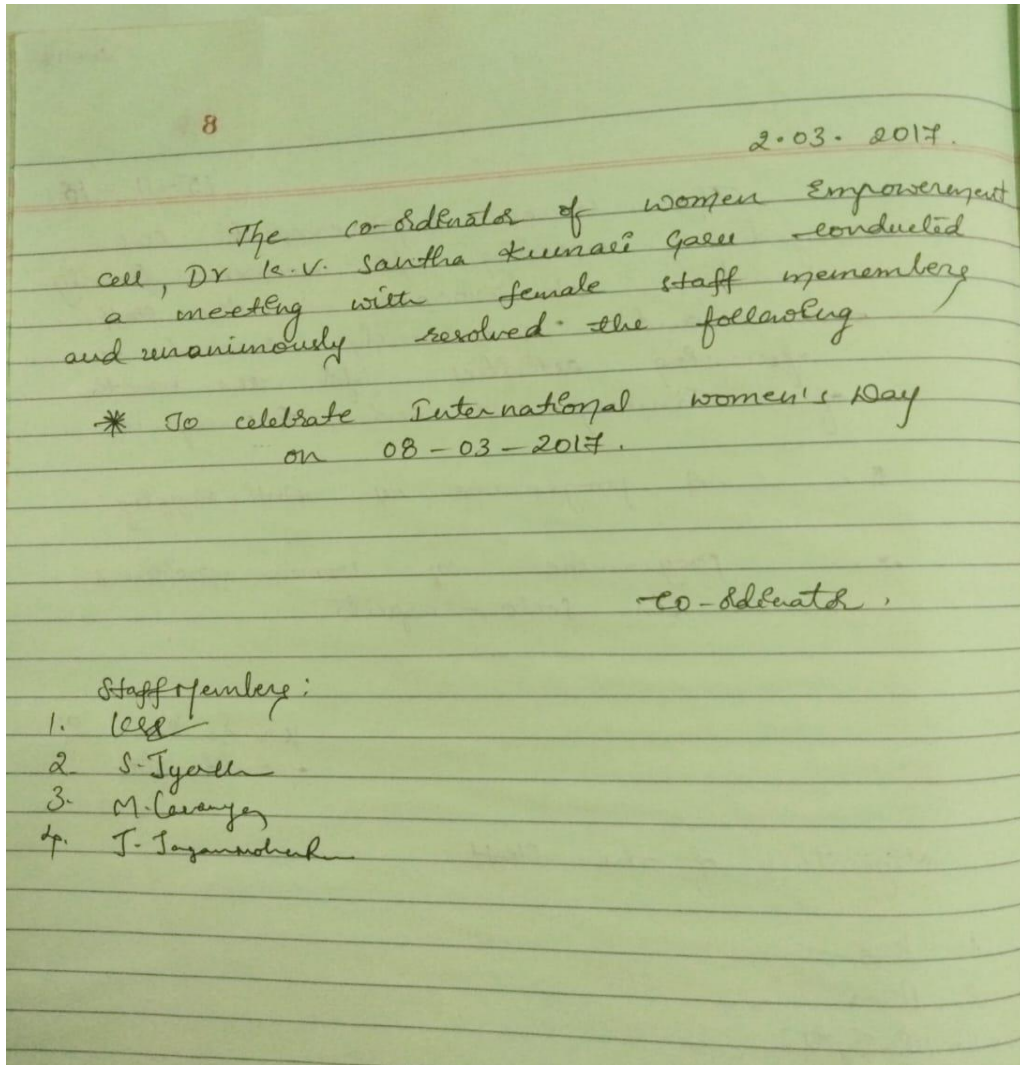 8
2.03.2017.
The co-ordinator of women Empowerement
cell, Dr K.V. Santha Kumari Garu conducted
a meeting with female staff mememberes
and unanimously resolved the following
* To celebrate International women's Day
on 08-03-2017.
Co-ordinator.
Staff Members:
1.
2. S. Jyothi
3. M. Lavanya
4. J.